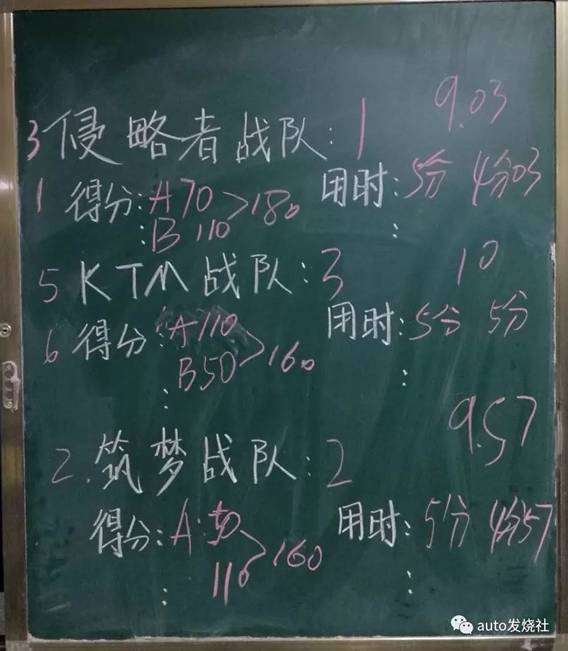 9.03
3 侵略者战队: 1
1 得分: A 70 > 180 用时: 5分 4分03
: B 110 :
10
5 KTM战队: 3
6 得分: A110 > 160 用时: 5分 5分
B50 :
:
9.57
2. 筑梦战队: 2
得分: A: 50 > 160 用时: 5分 4分57
110
: :
auto发烧社